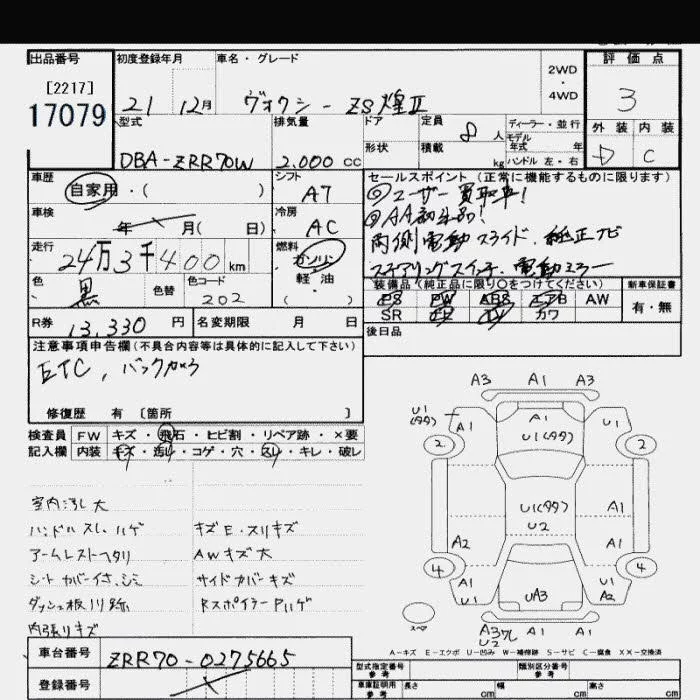 出品番号 初度登録年月 車名・グレード 2WD ・ 4WD 評価点
[2217]
17079 21 12月 ヴォクシー ZS煌Ⅱ 3
型式 排気量 ドア 定員 8人 ディーラー・並行 外装 内装
形状 積載 kg モデル年式 年 ハンドル 左・右
DBA-ZRR70W 2.000cc D C
車歴 自家用・( ) シフト A7 セールスポイント(正常に機能するものに限ります)
◎ユーザー買取車!
車検 年 月( 日) 冷房 AC ◎AA初出品!
両側電動スライド、純正ナビ
走行 24万3千400km 燃料 ガソリン 軽油 ( )
ステアリングスイッチ、電動ミラー
色 黒 色替 色コード 202
装備品(純正品に限り○をつけてください) 新車保証書
PS PW ABS エアB AW 有・無
SR ナビ TV カワ
R券 13,330円 名変期限 月 日 後日品
注意事項申告欄(不具合内容等は具体的に記入して下さい)
ETC, バックカメラ
修復歴 有〔箇所 〕
検査員 FW キズ・飛石・ヒビ割・リペア跡・×要
記入欄 内装 キズ・汚れ・コゲ・穴・スレ・キレ・破レ
室内汚レ大
ハンドルスレ、ハゲ キズE・スリキズ
アームレストヘタリ AWキズ大
シートカバー付き、シミ サイドカバーキズ
ダッシュ板ノリ跡 RスポイラーPハゲ
内張りキズ
A3 A1 A3
U1(タタ) A1 A1 U1
2 U1(タタ) 2
U1(タタ) A1
U2
A2 A1
4 4
A1 UA3 U1
U1 A2
スペア A3ワレ A1 A1
U2
A-キズ E-エクボ U-凹み W-補修跡 S-サビ C-腐食 XX-交換済
車台番号 ZRR70-0275665
登録番号
型式指定番号 参考 類別区分番号 参考
車庫証明用 参考 長さ cm 幅 cm 高さ cm